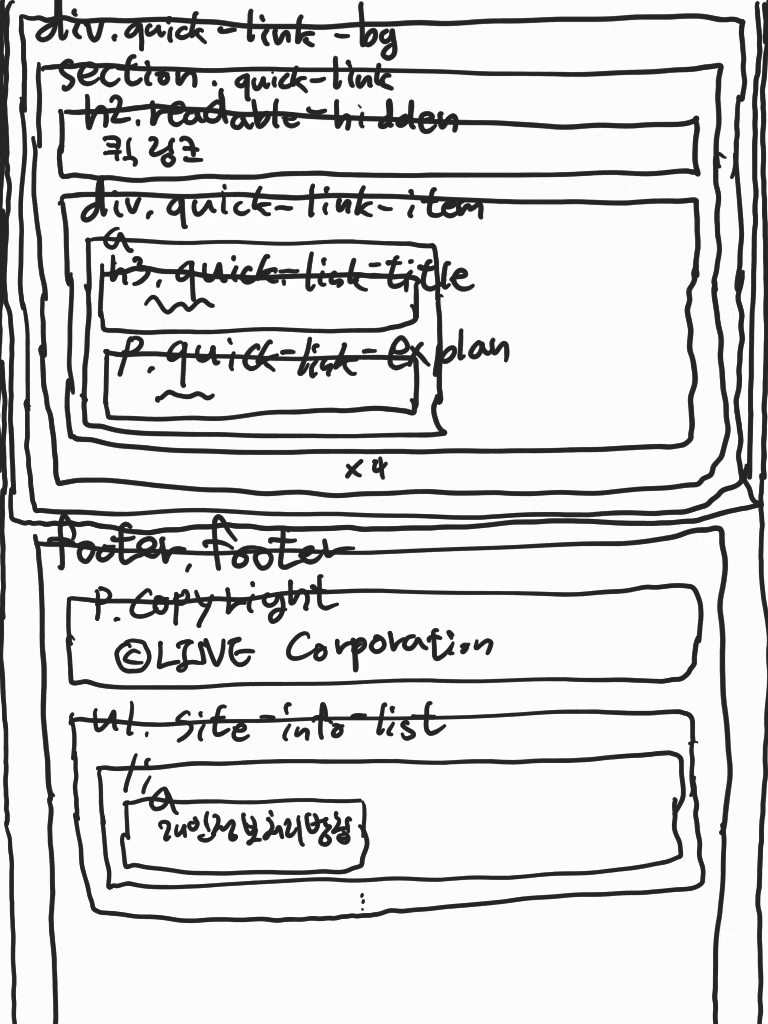 div.quick-link-bg
section.quick-link
h2.readable-hidden
퀵링크
div.quick-link-item
a
h3.quick-link-title
p.quick-link-explan
×4
footer.footer
p.copyright
©LINE Corporation
ul.site-info-list
li
a
개인정보처리방침
⋮